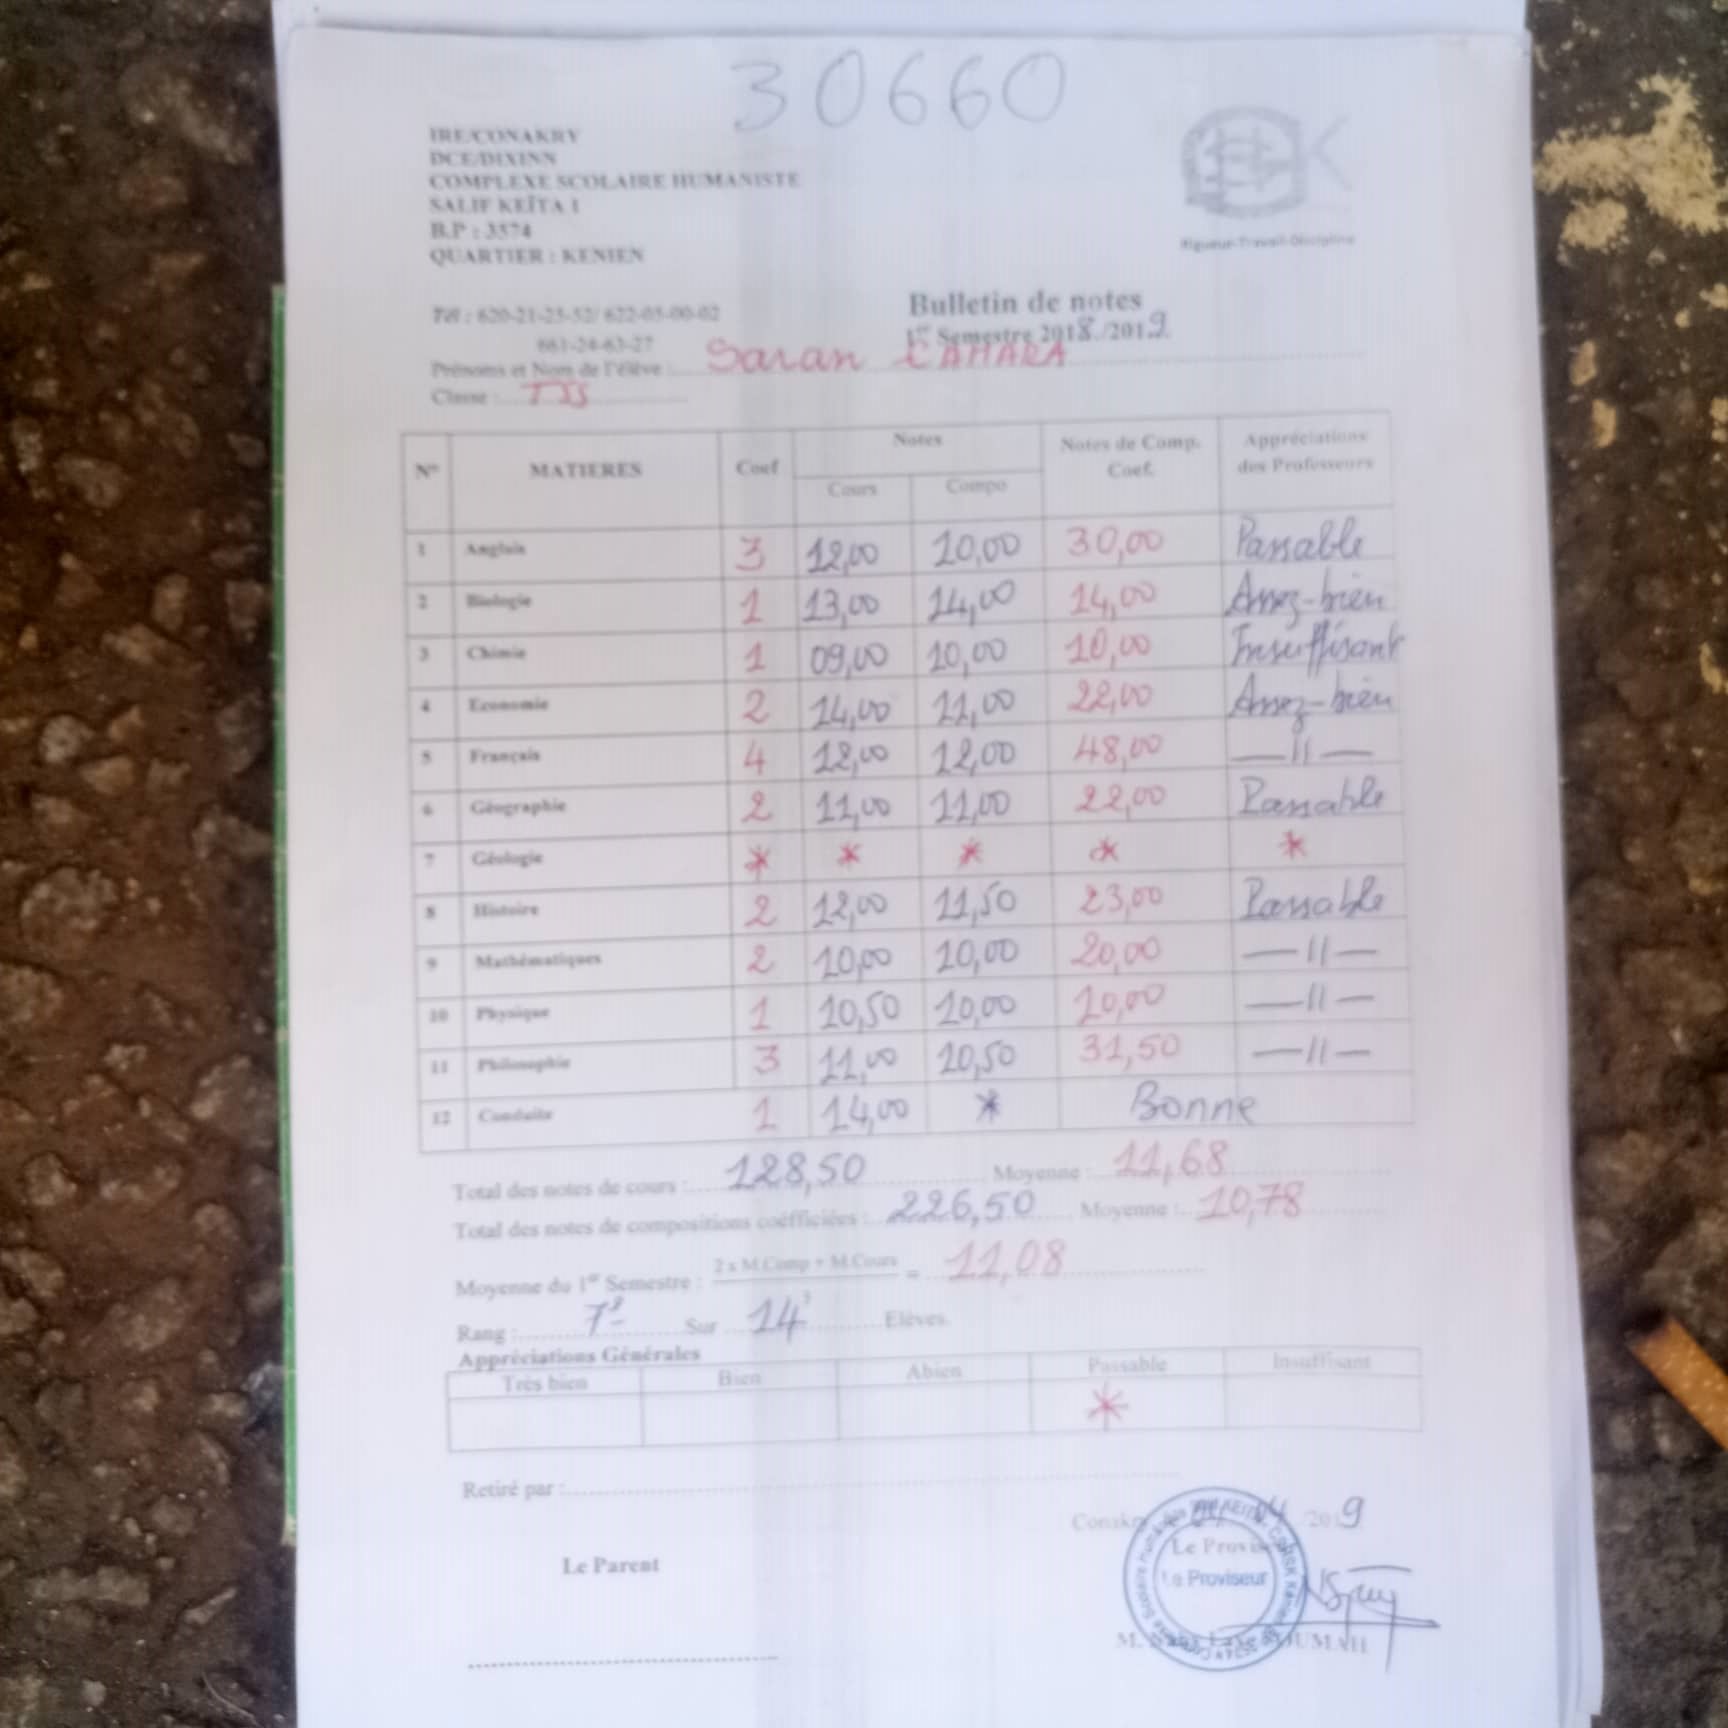 30660
IRE/CONAKRY
DCE/DIXINN
COMPLEXE SCOLAIRE HUMANISTE
SALIF KEÏTA 1
B.P : 3574
QUARTIER : KENIEN
Rigueur-Travail-Discipline
Tél : 620-21-25-52/ 622-05-00-02
661-24-63-27
Bulletin de notes
1er Semestre 2018/2019.
Prénoms et Nom de l'élève : Saran CAMARA
Classe : TSS
N° MATIERES Coef Notes Notes de Comp. Coef. Appréciations des Professeurs
Cours Compo
1 Anglais 3 12,00 10,00 30,00 Passable
2 Biologie 1 13,00 14,00 14,00 Assez-bien
3 Chimie 1 09,00 10,00 10,00 Insuffisant
4 Economie 2 14,00 11,00 22,00 Assez-bien
5 Français 4 12,00 12,00 48,00 —//—
6 Géographie 2 11,00 11,00 22,00 Passable
7 Géologie * * * * *
8 Histoire 2 12,00 11,50 23,00 Passable
9 Mathématiques 2 10,00 10,00 20,00 —//—
10 Physique 1 10,50 10,00 10,00 —//—
11 Philosophie 3 11,00 10,50 31,50 —//—
12 Conduite 1 14,00 * Bonne
Total des notes de cours : 128,50 Moyenne : 11,68
Total des notes de compositions coéfficiées : 226,50 Moyenne : 10,78
Moyenne du 1er Semestre : 2 x M.Comp + M.Cours = 11,08
Rang : 7e Sur 14 Elèves.
Appréciations Générales
Très bien Bien Abien Passable Insuffisant
*
Retiré par :
Conakry 04 /2019
Le Proviseur
Le Proviseur
Le Parent
M.